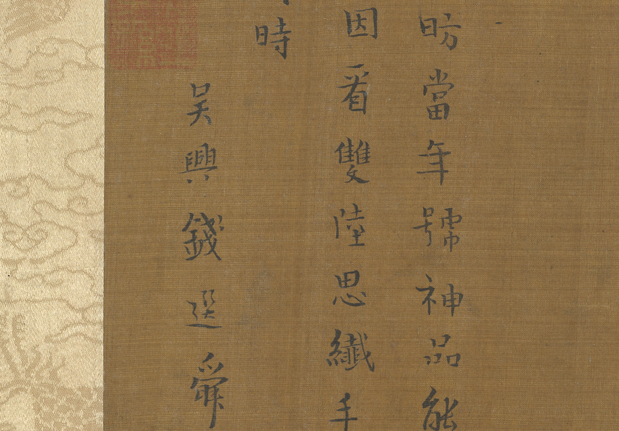 昉當年號神品能
因看雙陸思纖手
時
吳興錢選舜